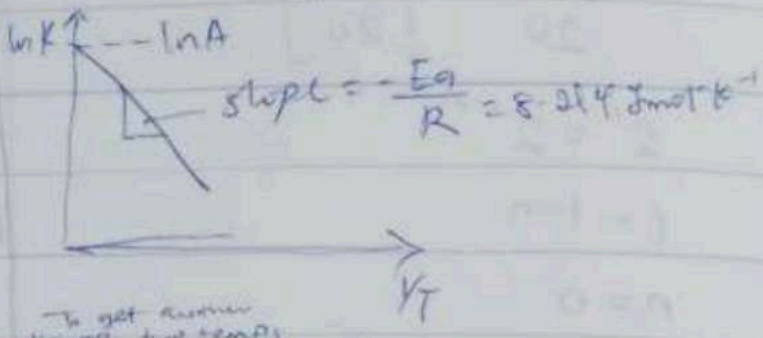 ln K --- ln A
slope = - Ea / R = 8.214 Jmol⁻¹ K⁻¹
1/T
To get another